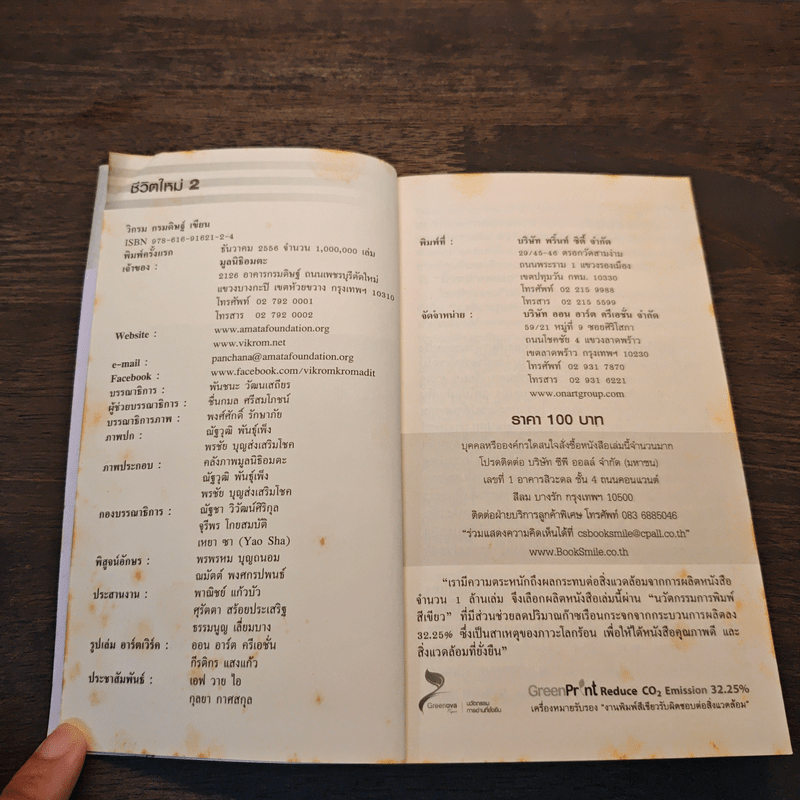 ชีวิตใหม่ 2
วิกรม กรมดิษฐ์ เขียน
ISBN 978-616-91621-2-4
พิมพ์ครั้งแรก ธันวาคม 2556 จำนวน 1,000,000 เล่ม
เจ้าของ : มูลนิธิอมตะ
2126 อาคารกรมดิษฐ์ ถนนเพชรบุรีตัดใหม่
แขวงบางกะปิ เขตห้วยขวาง กรุงเทพฯ 10310
โทรศัพท์ 02 792 0001
โทรสาร 02 792 0002
Website : www.amatafoundation.org
www.vikrom.net
e-mail : panchana@amatafoundation.org
Facebook : www.facebook.com/vikromkromadit
บรรณาธิการ : พันชนะ วัฒนเสถียร
ผู้ช่วยบรรณาธิการ : ชื่นกมล ศรีสมโภชน์
บรรณาธิการภาพ : พงศ์ศักดิ์ รักษาภัย
ภาพปก : ณัฐวุฒิ พันธุ์เพ็ง
พรชัย บุญส่งเสริมโชค
ภาพประกอบ : คลังภาพมูลนิธิอมตะ
ณัฐวุฒิ พันธุ์เพ็ง
พรชัย บุญส่งเสริมโชค
กองบรรณาธิการ : ณัฐชา วิวัฒน์ศิริกุล
จุรีพร โกยสมบัติ
เหยา ซา (Yao Sha)
พิสูจน์อักษร : พรพรหม บุญถนอม
ณมัตต์ พงศกรปพนธ์
ประสานงาน : พาณิชย์ แก้วบัว
ศุรัตดา สร้อยประเสริฐ
ธรรมนูญ เลี่ยมบาง
รูปเล่ม อาร์ตเวิร์ค : ออน อาร์ต ครีเอชั่น
กีรติกร แสงแก้ว
ประชาสัมพันธ์ : เอฟ วาย ไอ
กุลยา กาศสกุล
พิมพ์ที่ : บริษัท พริ้นท์ ซิตี้ จำกัด
29/45-46 ตรอกวัดสามง่าม
ถนนพระราม 1 แขวงรองเมือง
เขตปทุมวัน กทม. 10330
โทรศัพท์ 02 215 9988
โทรสาร 02 215 5599
จัดจำหน่าย : บริษัท ออน อาร์ต ครีเอชั่น จำกัด
59/21 หมู่ที่ 9 ซอยศิริโสภา
ถนนโชคชัย 4 แขวงลาดพร้าว
เขตลาดพร้าว กรุงเทพฯ 10230
โทรศัพท์ 02 931 7870
โทรสาร 02 931 6221
www.onartgroup.com
ราคา 100 บาท
บุคคลหรือองค์กรใดสนใจสั่งซื้อหนังสือเล่มนี้จำนวนมาก
โปรดติดต่อ บริษัท ซีพี ออลล์ จำกัด (มหาชน)
เลขที่ 1 อาคารสีวะดล ชั้น 4 ถนนคอนแวนต์
สีลม บางรัก กรุงเทพฯ 10500
ติดต่อฝ่ายบริการลูกค้าพิเศษ โทรศัพท์ 083 6885046
“ร่วมแสดงความคิดเห็นได้ที่ csbooksmile@cpall.co.th”
www.BookSmile.co.th
“เรามีความตระหนักถึงผลกระทบต่อสิ่งแวดล้อมจากการผลิตหนังสือ
จำนวน 1 ล้านเล่ม จึงเลือกผลิตหนังสือเล่มนี้ผ่าน “นวัตกรรมการพิมพ์
สีเขียว” ที่มีส่วนช่วยลดปริมาณก๊าซเรือนกระจกจากกระบวนการผลิตลง
32.25% ซึ่งเป็นสาเหตุของภาวะโลกร้อน เพื่อให้ได้หนังสือคุณภาพดี และ
สิ่งแวดล้อมที่ยั่งยืน”
Greenova นวัตกรรม
การอ่านที่ยั่งยืน
GreenPrint Reduce CO₂ Emission 32.25%
เครื่องหมายรับรอง “งานพิมพ์สีเขียวรับผิดชอบต่อสิ่งแวดล้อม”